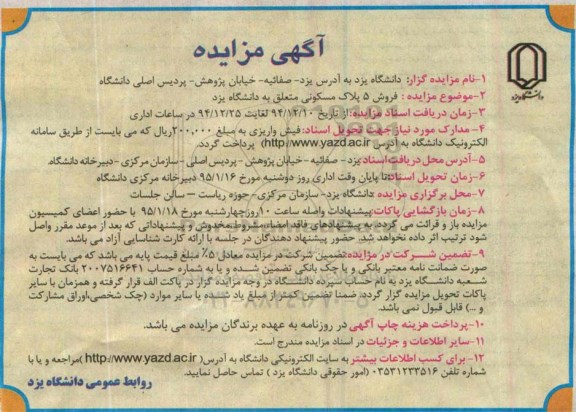 آگهی مزایده
دانشگاه یزد
۱-نام مزایده گزار: دانشگاه یزد به آدرس یزد- صفائیه- خیابان پژوهش- پردیس اصلی دانشگاه
۲-موضوع مزایده : فروش ۵ پلاک مسکونی متعلق به دانشگاه یزد
۳-زمان دریافت اسناد مزایده:از تاریخ ۹۴/۱۲/۱۰ لغایت ۹۴/۱۲/۲۵ در ساعات اداری
۴- مدارک مورد نیاز جهت تحویل اسناد:فیش واریزی به مبلغ ۲۰۰،۰۰۰ریال که می بایست از طریق سامانه
الکترونیک دانشگاه به آدرس http://www.yazd.ac.ir) پرداخت گردد.
۵-آدرس محل دریافت اسناد:یزد- صفائیه -خیابان پژوهش- پردیس اصلی -سازمان مرکزی -دبیرخانه دانشگاه.
۶-زمان تحویل اسناد:تا پایان وقت اداری روز دوشنبه مورخ ۹۵/۱/۱۶ دبیرخانه مرکزی دانشگاه
۷-محل برگزاری مزایده :دانشگاه یزد- سازمان مرکزی- حوزه ریاست – سالن جلسات
۸-زمان بازگشایی پاکات:پیشنهادات واصله ساعت ۱۰روزچهارشنبه مورخ ۹۵/۱/۱۸ با حضور اعضای کمیسیون
مزایده باز و قرائت می گردد، به پیشنهادهای فاقد امضاء،مشروط،مخدوش و پیشنهاداتی که بعد از موعد مقرر واصل
شود ترتیب اثر داده نخواهد شد. حضور پیشنهاد دهندگان در جلسه با ارائه کارت شناسایی آزاد می باشد.
۹-تضمین شــرکت در مزایده:تضمین شرکت در مزایده معادل ۵٪ مبلغ قیمت پایه می باشد که می بایست به
صورت ضمانت نامه معتبر بانکی و یا چک بانکی تضمین شــده و یا به شماره حساب ۲۰۰۷۵۱۶۶۴۱ بانک تجارت
شــعبه دانشــگاه یزد به نام حساب سپرده دانشگاه در وجه مزایده گزار در پاکت الف قرار گرفته و همزمان با سایر
پاکات تحویل مزایده گزار گردد. ضمنا تضمین کمتر از مبلغ یاد شــده یا سایر موارد (چک شخصی،اوراق مشارکت
و ...) قابل قبول نمی باشد.
۱۰-پرداخت هزینه چاپ آگهی در روزنامه به عهده برندگان مزایده می باشد.
۱۱-سایر اطلاعات و جزئیات در اسناد مزایده مندرج است.
۱۲- برای کسب اطلاعات بیشتر به سایت الکترونیکی دانشگاه به آدرس( http://www.yazd.ac.ir )مراجعه و یا با
شماره تلفن ۰۳۵۳۱۲۳۳۵۱۶ (امور حقوقی دانشگاه یزد ) تماس حاصل نمایید.
روابط عمومی دانشگاه یزد